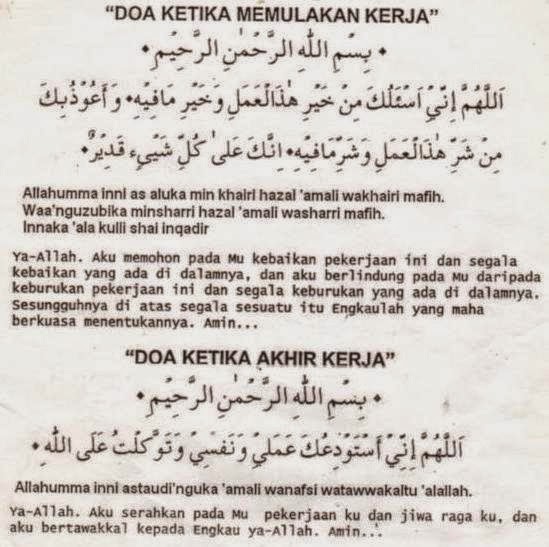 “DOA KETIKA MEMULAKAN KERJA”
• بِسْمِ اللهِ الرَّحْمٰنِ الرَّحِيْمِ •
اَللَّهُمَّ اِنِّيْ اَسْئَلُكَ مِنْ خَيْرِ هٰذَالْعَمَلِ وَخَيْرِ مَافِيْهِ • وَ اَعُوْذُبِكَ
مِنْ شَرِّ هٰذَالْعَمَلِ وَشَرِّمَافِيْهِ • اِنَّكَ عَلىٰ كُلِّ شَيْيءٍ قَدِيْرٌ •
Allahumma inni as aluka min khairi hazal 'amali wakhairi mafih.
Waa'nguzubika minsharri hazal 'amali washarri mafih.
Innaka 'ala kulli shai inqadir
Ya-Allah. Aku memohon pada Mu kebaikan pekerjaan ini dan segala
kebaikan yang ada di dalamnya, dan aku berlindung pada Mu daripada
keburukan pekerjaan ini dan segala keburukan yang ada di dalamnya.
Sesungguhnya di atas segala sesuatu itu Engkaulah yang maha
berkuasa menentukannya. Amin...
“DOA KETIKA AKHIR KERJA”
• بِسْمِ اللهِ الرَّحْمٰنِ الرَّحِيْمِ •
اَللَّهُمَّ اِنِّيْ اَسْتَوْدِعُكَ عَمَلِيْ وَنَفْسِيْ وَتَوَكَّلْتُ عَلَى اللهِ •
Allahumma inni astaudi'nguka 'amali wanafsi watawwakaltu 'alallah.
Ya-Allah. Aku serahkan pada Mu pekerjaan ku dan jiwa raga ku, dan
aku bertawakkal kepada Engkau ya-Allah. Amin...